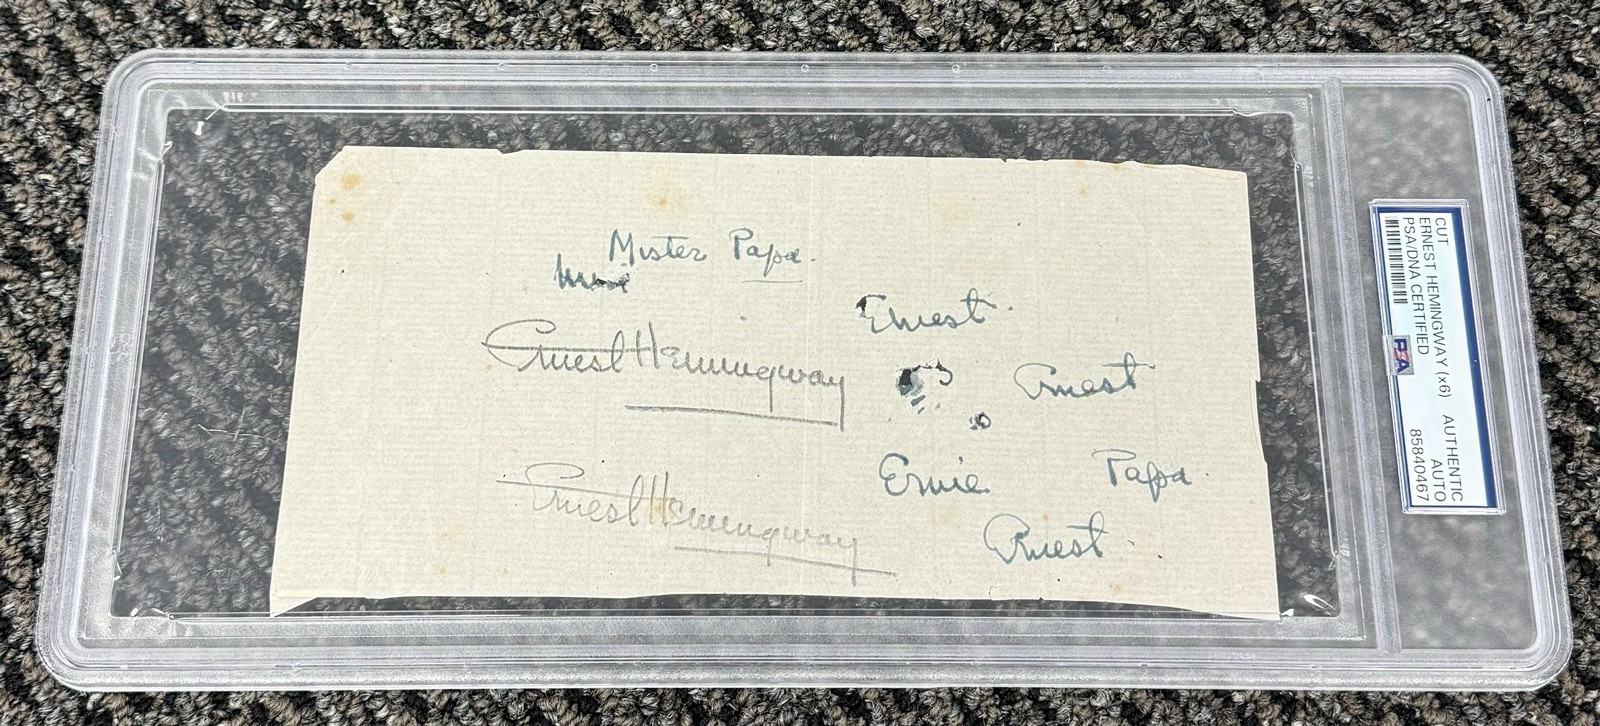 Mister Papa.
Ernest Hemingway
Ernest Hemingway
Ernest.
Ernest
Ernie
Papa.
Ernest.
CUT
ERNEST HEMINGWAY (x6)
PSA/DNA CERTIFIED
AUTHENTIC
AUTO
85840467
PSA